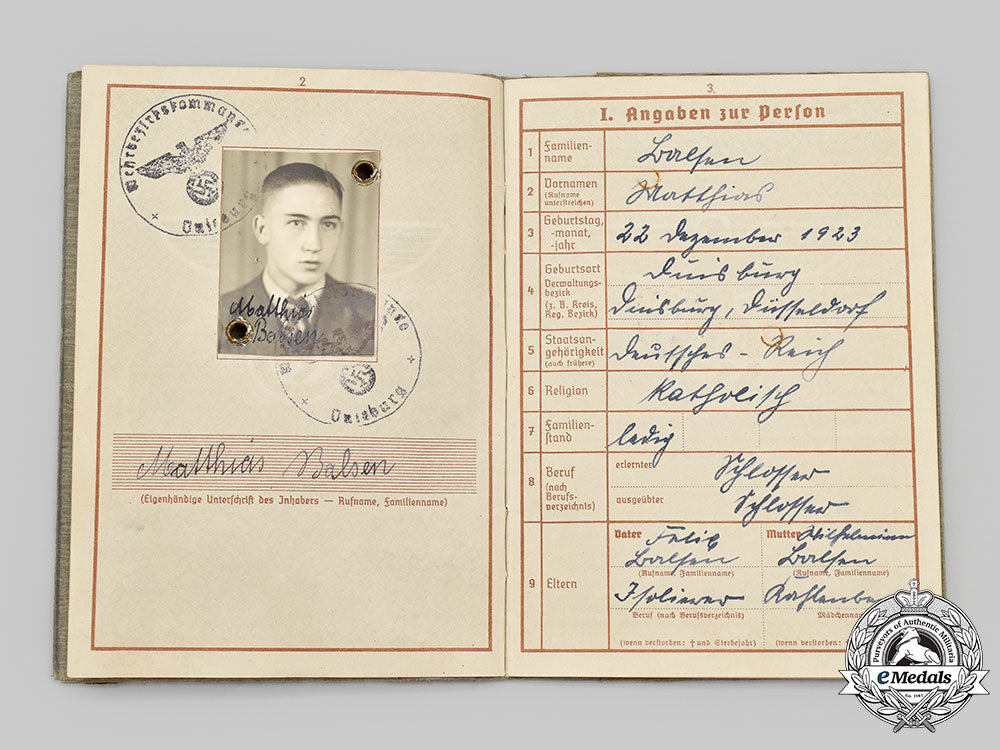 2
Wehrbezirkskommando
Duisburg
Matthias
Balsen
Duisburg
Matthias Balsen
(Eigenhändige Unterschrift des Inhabers — Rufname, Familienname)
3.
I. Angaben zur Person
1 Familien-
name
Balsen
2 Vornamen
(Rufname
unterstreichen)
Matthias
3 Geburtstag,
-monat,
-jahr
22 Dezember 1923
4 Geburtsort
Verwaltungs-
bezirk
(z. B. Kreis,
Reg. Bezirk)
Duisburg
Duisburg, Düsseldorf
5 Staatsan-
gehörigkeit
(auch frühere)
Deutsches - Reich
6 Religion
katholisch
7 Familien-
stand
ledig
8 Beruf
(nach
Berufs-
verzeichnis)
erlernter
Schlosser
ausgeübter
Schlosser
9 Eltern
Vater Felix
Balsen
(Rufname, Familienname)
Isolierer
Beruf (nach Berufsverzeichnis)
(wenn verstorben: † und Sterbejahr)
Mutter Wilhelmine
Balsen
(Rufname, Familienname)
Mädchenna
(wenn verstorben: †
Purveyors of Authentic Militaria
eMedals